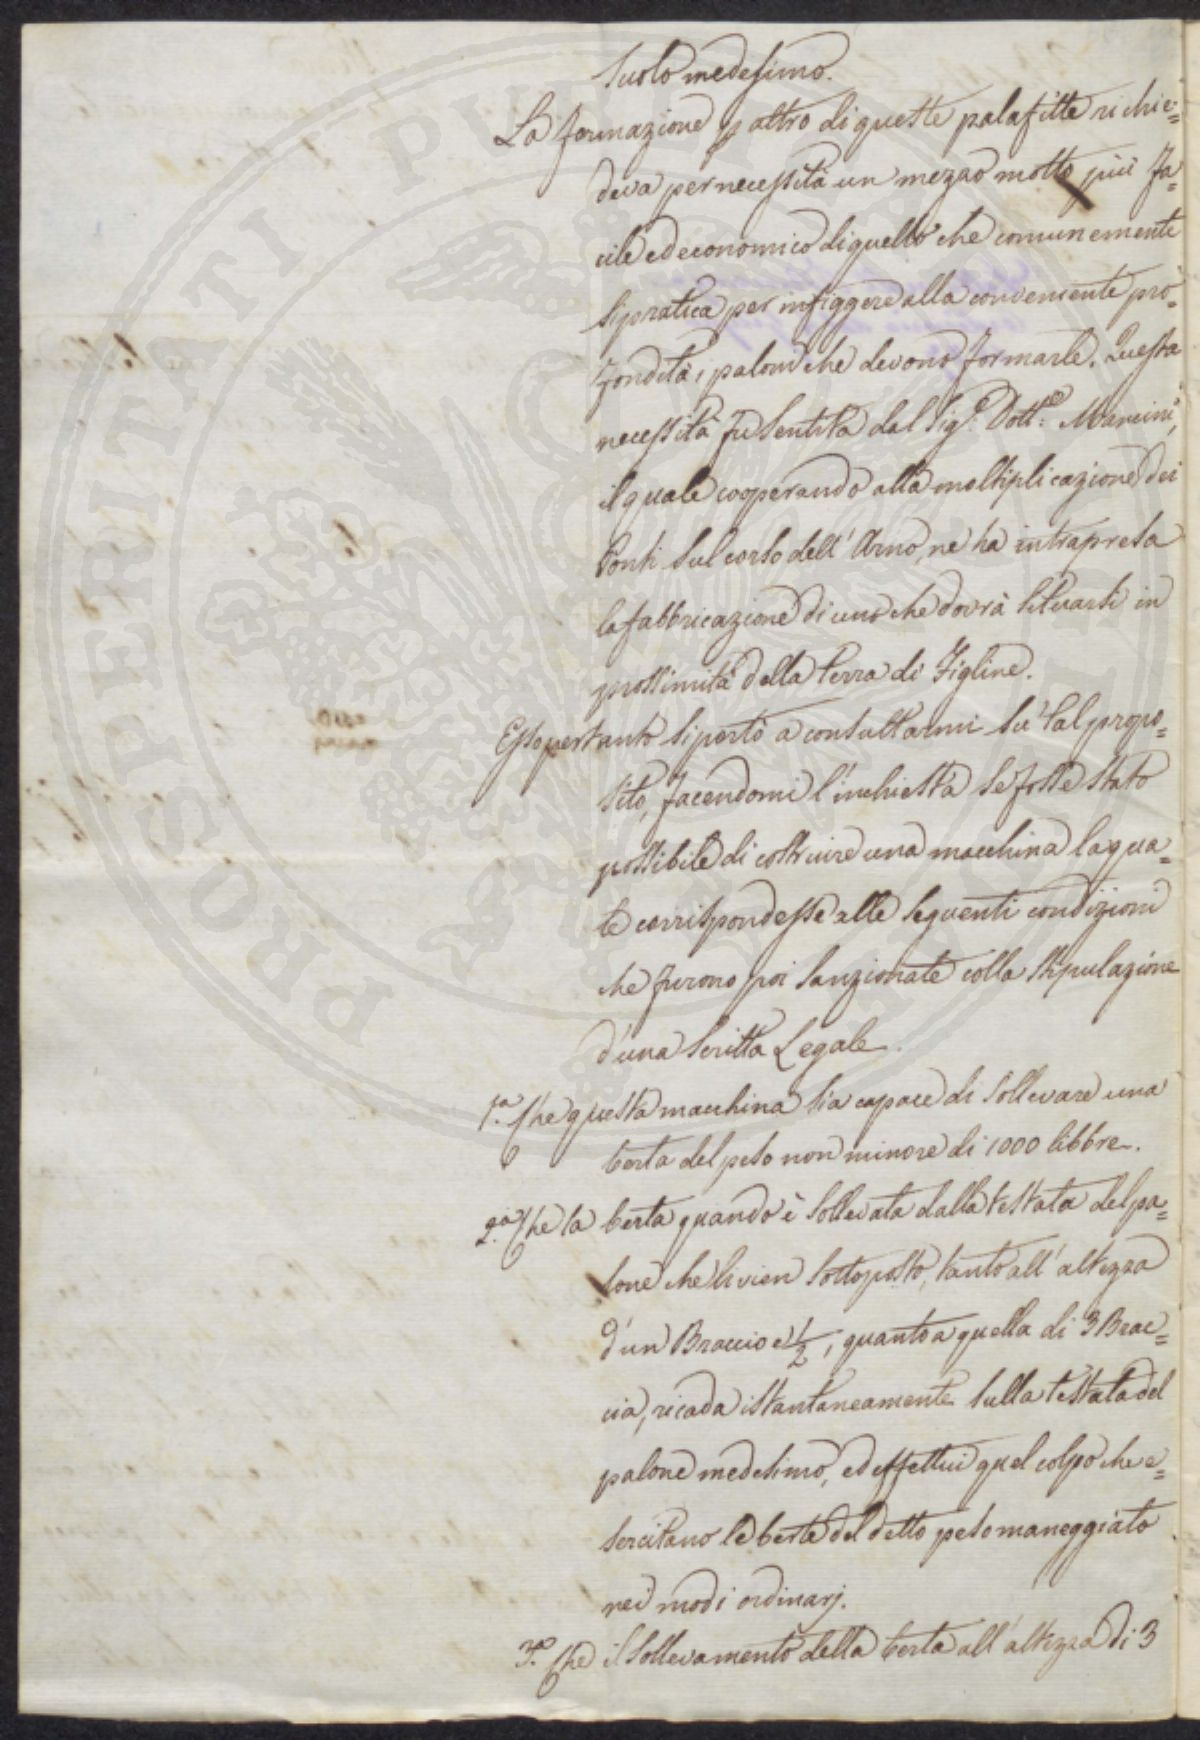 suolo medesimo.
La formazione p altro di queste palafitte richie=
deva per necessità un mezzo molto più fa=
cile ed economico di quello che comunemente
si pratica per infiggere alla conveniente pro=
fondità, i paloni che devono formarle. Questa
necessità fu sentita dal Sig.e Dott.e Mancini,
il quale cooperando alla moltiplicazione dei
Ponti sul corso dell'Arno, ne ha intrapresa
la fabbricazione di uno che dovrà situarsi in
prossimità della Terra di Figline.
Esso pertanto si portò a consultarmi su tal propo=
sito, facendomi l'inchiesta se fosse stato
possibile di costruire una macchina la qua=
le corrispondesse alle seguenti condizioni
che furono poi sanzionate colla stipulazione
d'una Scritta Legale.
1.a Che questa macchina sia capace di sollevare una
berta del peso non minore di 1000 libbre.
2.a Che la berta quando è sollevata dalla testata del pa=
lone che li vien sottoposto, tanto all'altezza
d'un Braccio e 1/2, quanto a quella di 3 Brac=
cia, ricada istantaneamente sulla testata del
palone medesimo, ed effettui quel colpo che e=
sercitano le berte del detto peso maneggiato
nei modi ordinarj.
3.a Che il sollevamento della berta all'altezza di 3
PROSPERITATI PUBLICAE